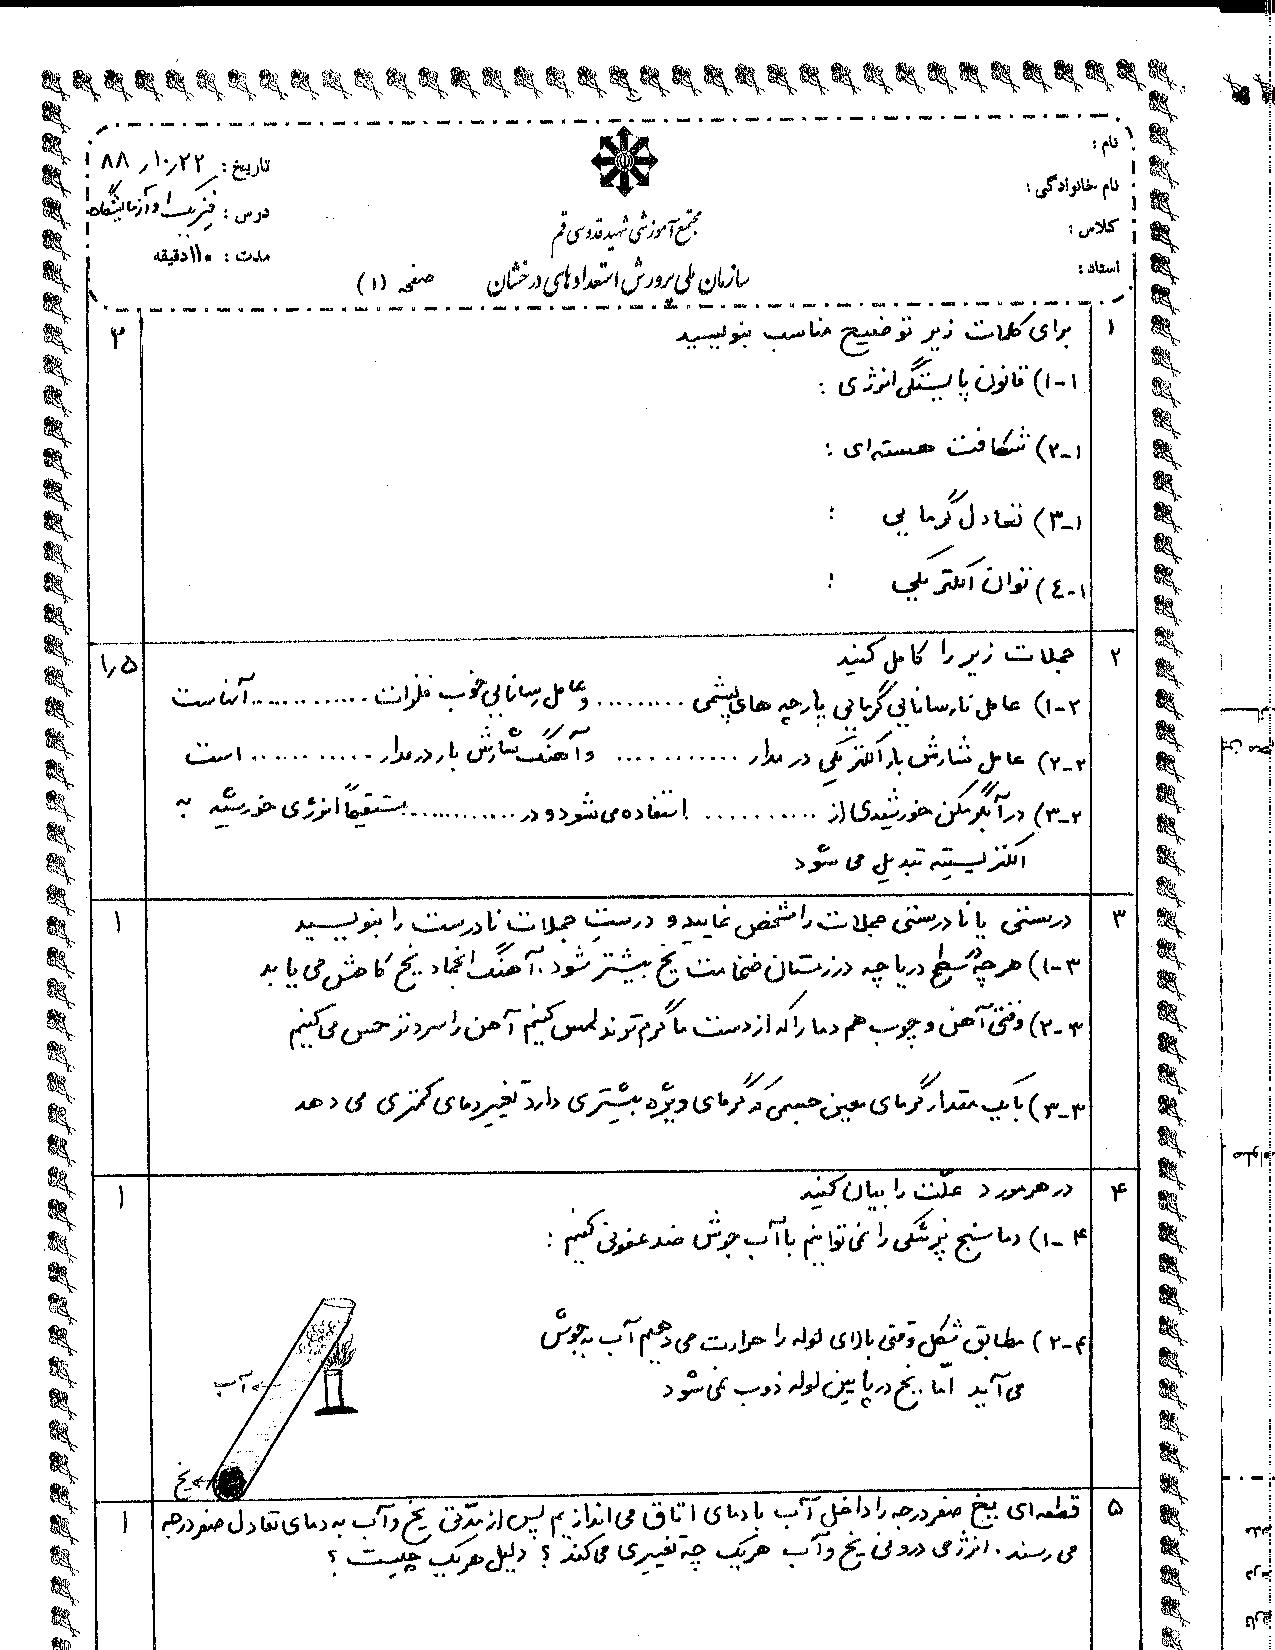 نام :
نام خانوادگی :
کلاس :
استاد :
مجتمع آموزشی شهید قدوسی قم
سازمان ملی پرورش استعدادهای درخشان صفحه (۱)
تاریخ : ۸۸٫۱۰٫۲۲
درس : فیزیک ۱ و آزمایشگاه
مدت : ۱۱۰ دقیقه
۱ برای کلمات زیر توضیح مناسب بنویسید ۲
۱-۱) قانون پایستگی انرژی :
۱-۲) شکافت هسته‌ای :
۱-۳) تعادل گرمایی :
۱-۴) توان الکتریکی :
۲ جملات زیر را کامل کنید ۱٫۵
۲-۱) عامل نارسانایی گرمایی پارچه های پشمی ......... و عامل رسانایی خوب فلزات ............ آنهاست
۲-۲) عامل شارش بار الکتریکی در مدار ............ و آهنگ شارش بار در مدار ............ است
۲-۳) در آبگرمکن خورشیدی از .......... استفاده می شود و در ............ مستقیماً انرژی خورشید به
الکتریسیته تبدیل می شود
۳ درستی یا نادرستی جملات را مشخص نمایید و درستِ جملات نادرست را بنویسید ۱
۳-۱) هر چه سطح دریاچه در زمستان ضخامت یخ بیشتر شود، آهنگ انجماد یخ کاهش می یابد
۳-۲) وقتی آهن و چوب هم دما را که از دست ما گرم ترند لمس کنیم آهن را سردتر حس می کنیم
۳-۳) با یک مقدار گرمای معین جسمی که گرمای ویژه بیشتری دارد تغییر دمای کمتری می دهد
۴ در هر مورد علّت را بیان کنید ۱
۴-۱) دماسنج پزشکی را نمی توانیم با آب جوش ضد عفونی کنیم :
۴-۲) مطابق شکل وقتی بالای لوله را حرارت می دهیم آب به جوش
می آید امّا یخ در پایین لوله ذوب نمی شود
آب
یخ
۵ قطعه‌ای یخ صفر درجه را داخل آب با دمای اتاق می اندازیم پس از مدّتی یخ و آب به دمای تعادل صفر درجه ۱
می رسند . انرژی درونی یخ و آب هریک چه تغییری می کند ؟ دلیل هریک چیست ؟